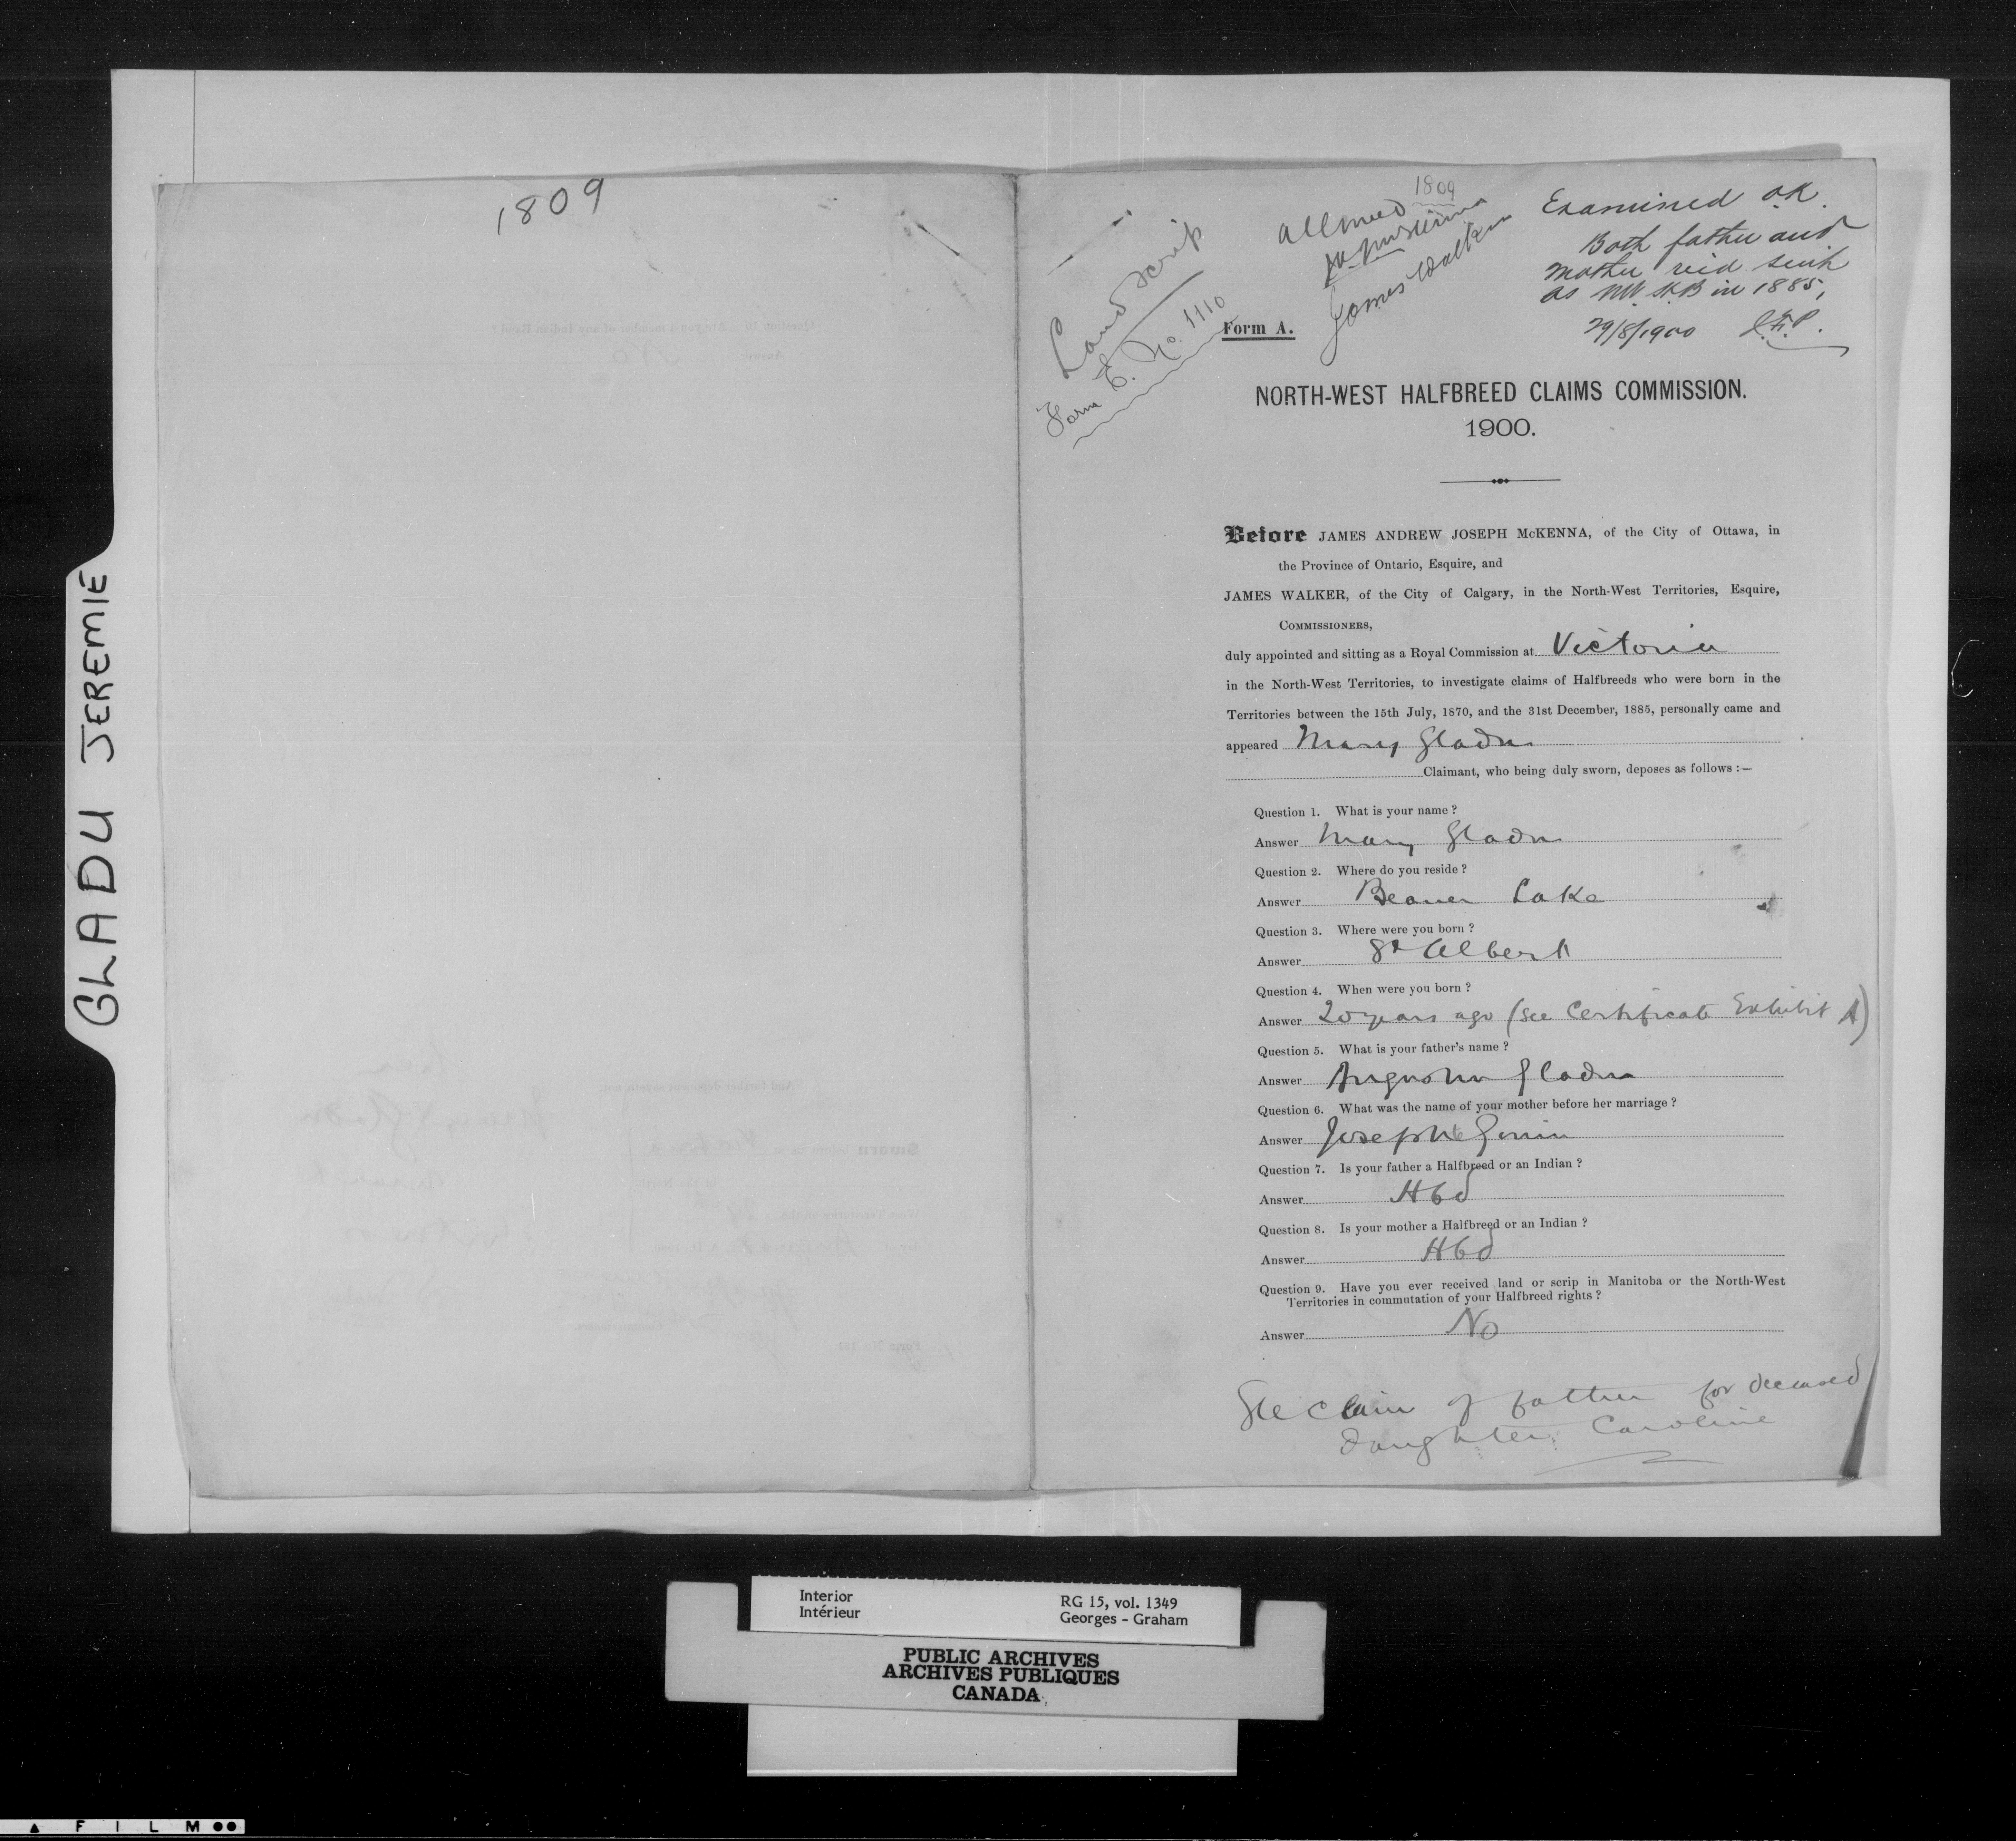 GLADU JEREMIE
1809
1809
Land scrip
Form E. No. 1110
Allowed
James Walker
Examined O.K.
Both father and
mother rec'd scrip
as NW. H.B in 1885,
29/8/1900
Form A.
NORTH-WEST HALFBREED CLAIMS COMMISSION.
1900.
Before JAMES ANDREW JOSEPH McKENNA, of the City of Ottawa, in
the Province of Ontario, Esquire, and
JAMES WALKER, of the City of Calgary, in the North-West Territories, Esquire,
COMMISSIONERS,
duly appointed and sitting as a Royal Commission at Victoria
in the North-West Territories, to investigate claims of Halfbreeds who were born in the
Territories between the 15th July, 1870, and the 31st December, 1885, personally came and
appeared Mary Gladu
Claimant, who being duly sworn, deposes as follows :—
Question 1. What is your name ?
Answer Mary Gladu
Question 2. Where do you reside ?
Answer Beaver Lake
Question 3. Where were you born ?
Answer St Albert
Question 4. When were you born ?
Answer 20 years ago (See Certificate Exhibit A)
Question 5. What is your father's name ?
Answer Gladu
Question 6. What was the name of your mother before her marriage ?
Answer Josephte
Question 7. Is your father a Halfbreed or an Indian ?
Answer Hbd
Question 8. Is your mother a Halfbreed or an Indian ?
Answer Hbd
Question 9. Have you ever received land or scrip in Manitoba or the North-West
Territories in commutation of your Halfbreed rights ?
Answer No
See claim of father for deceased
daughter Caroline
Interior
Intérieur
RG 15, vol. 1349
Georges - Graham
PUBLIC ARCHIVES
ARCHIVES PUBLIQUES
CANADA
FILM